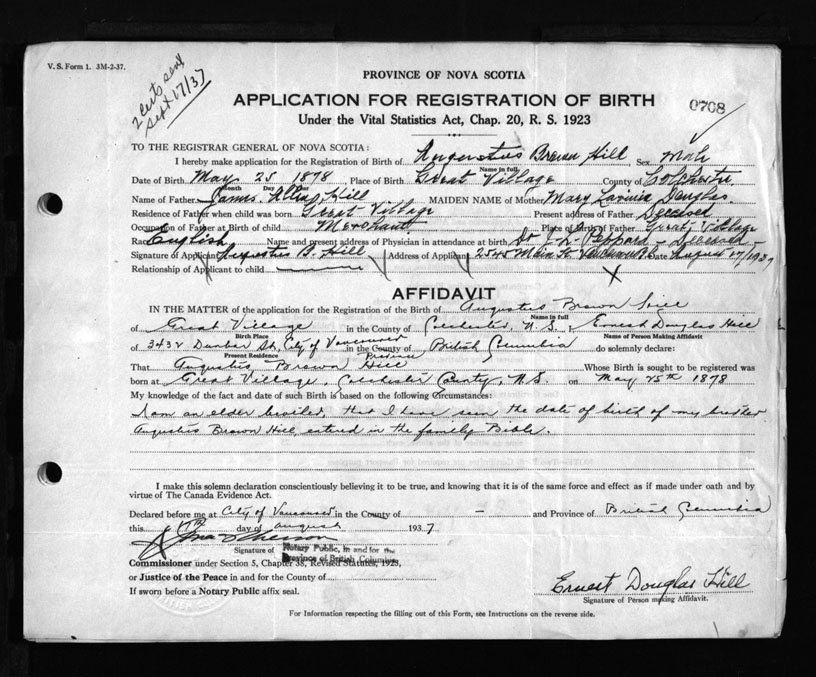 V. S. Form 1. 3M-2-37.
2 certs sent
Sept 17/37
PROVINCE OF NOVA SCOTIA
APPLICATION FOR REGISTRATION OF BIRTH
0708
Under the Vital Statistics Act, Chap. 20, R. S. 1923
TO THE REGISTRAR GENERAL OF NOVA SCOTIA:
I hereby make application for the Registration of Birth of Augustus Brown Hill Sex Male
Name in full
Date of Birth May 25 1878 Place of Birth Great Village County of Colchester
Month Day
Name of Father James Hill MAIDEN NAME of Mother Mary Lavinia Douglas
Residence of Father when child was born Great Village Present address of Father Deceased
Occupation of Father at Birth of child Merchant Place of Birth of Father Great Village
Race English Name and present address of Physician in attendance at birth Dr J. L. Peppard - Deceased
Signature of Applicant Augustus B. Hill Address of Applicant 2545 Main St Vancouver Date August 17/1937
Relationship of Applicant to child
AFFIDAVIT
IN THE MATTER of the application for the Registration of Birth of Augustus Brown Hill
Name in full
of Great Village in the County of Colchester, N.S. I, Ernest Douglas Hill
Birth Place Name of Person Making Affidavit
of 3432 Dunbar St, City of Vancouver in the County of British Columbia do solemnly declare:
Present Residence Province
That Augustus Brown Hill Whose Birth is sought to be registered was
born at Great Village, Colchester County, N.S. on May 25th 1878
My knowledge of the fact and date of such Birth is based on the following Circumstances:
I am an older brother, that I have seen the date of birth of my brother
Augustus Brown Hill, entered in the family Bible.
I make this solemn declaration conscientiously believing it to be true, and knowing that it is of the same force and effect as if made under oath and by
virtue of The Canada Evidence Act.
Declared before me at City of Vancouver in the County of - and Province of British Columbia
this day of August 1937
Signature of Notary Public, in and for the
Province of British Columbia
Commissioner under Section 5, Chapter 38, Revised Statutes, 1923,
or Justice of the Peace in and for County of
If sworn before a Notary Public affix seal.
Ernest Douglas Hill
Signature of Person making Affidavit.
For Information respecting the filling out of this Form, see Instructions on the reverse side.